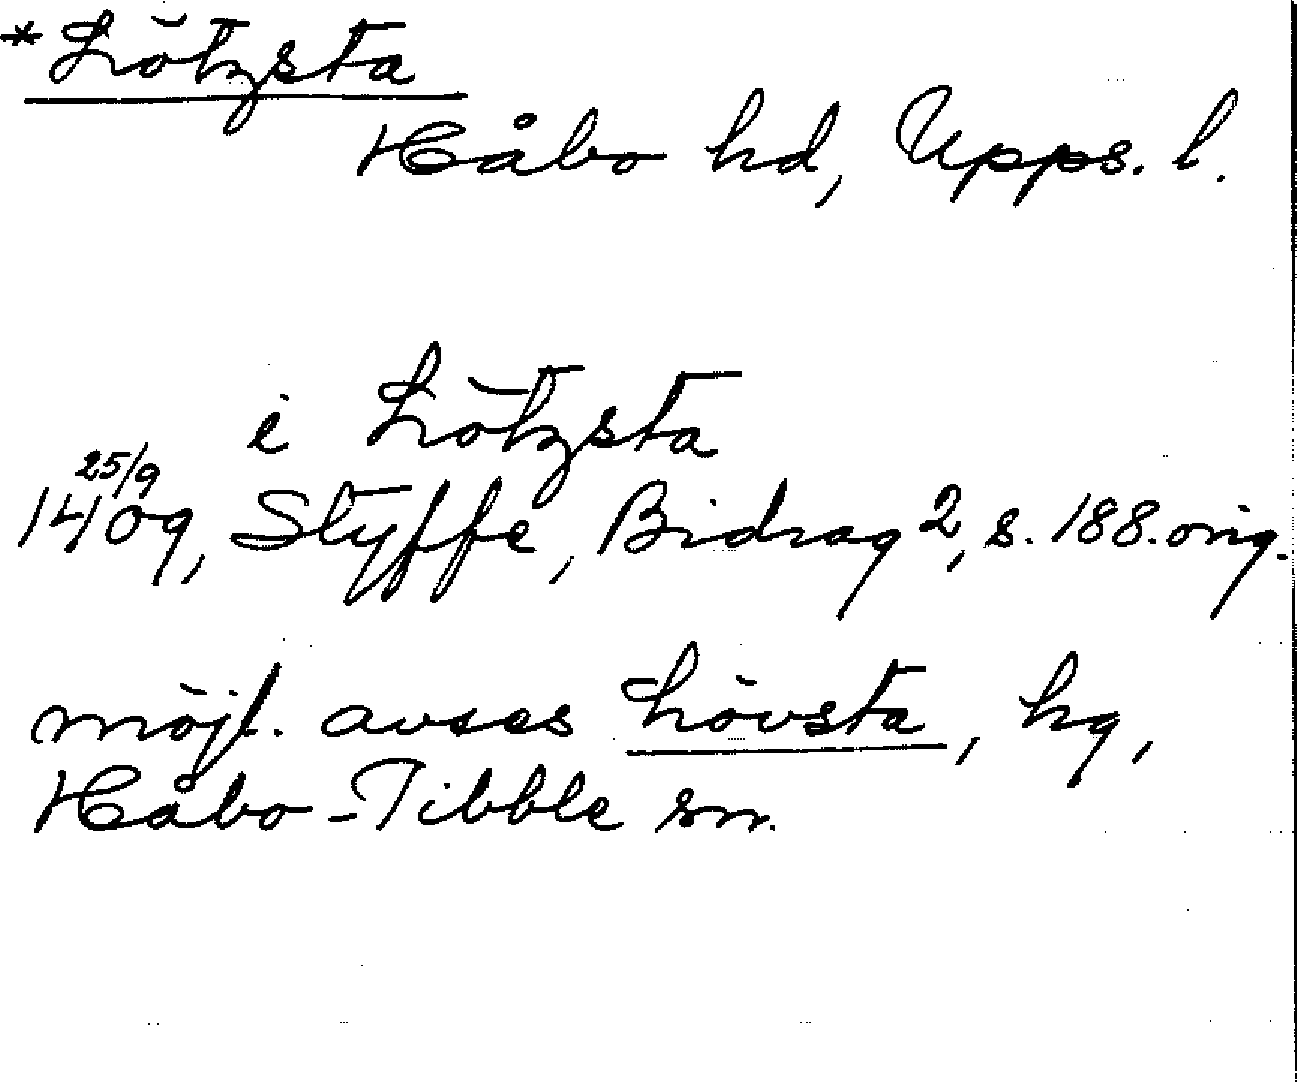 *Lötzsta
Håbo hd, Upps. l.
i Lötzsta
25/9
1409, Styffe, Bidrag 2, s. 188. orig.
möjl. avses Lövsta, hg,
Håbo-Tibble sn.